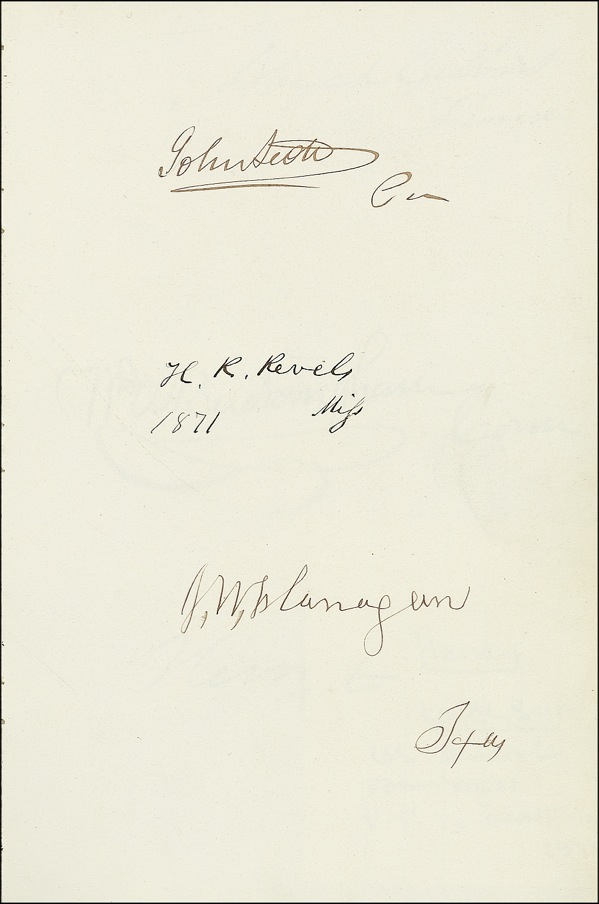 John Scott
Pa
H. R. Revels
1871 Miss
J. W. Flanagan
Texas